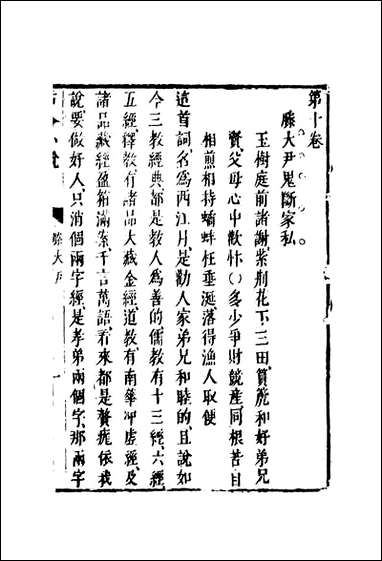 第十卷
滕大尹鬼斷家私
玉樹庭前諸謝紫荊花下三田塤篪和好弟兄
賢父母心中歡忭○多少爭財競産同根苦自
相煎相持鷸蚌枉垂涎落得漁人取便
這首詞名爲西江月是勸人家弟兄和睦的且說如
今三教經典都是教人爲善的儒教有十三經六經
五經釋教有諸品大藏金經道教有南華冲虛經及
諸品藏經盈箱滿案千言萬語看來都是贅疣依我
說要做好人只消個兩字經是孝弟兩個字那兩字
滕大尹